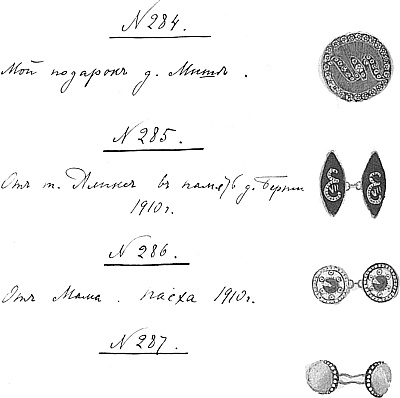 N 284.
Мой подарокъ д. Мишѣ.
N 285.
Отъ т. Аликсъ въ память д. Берти
1910 г.
N 286.
Отъ Мама. пасха 1910 г.
N 287.